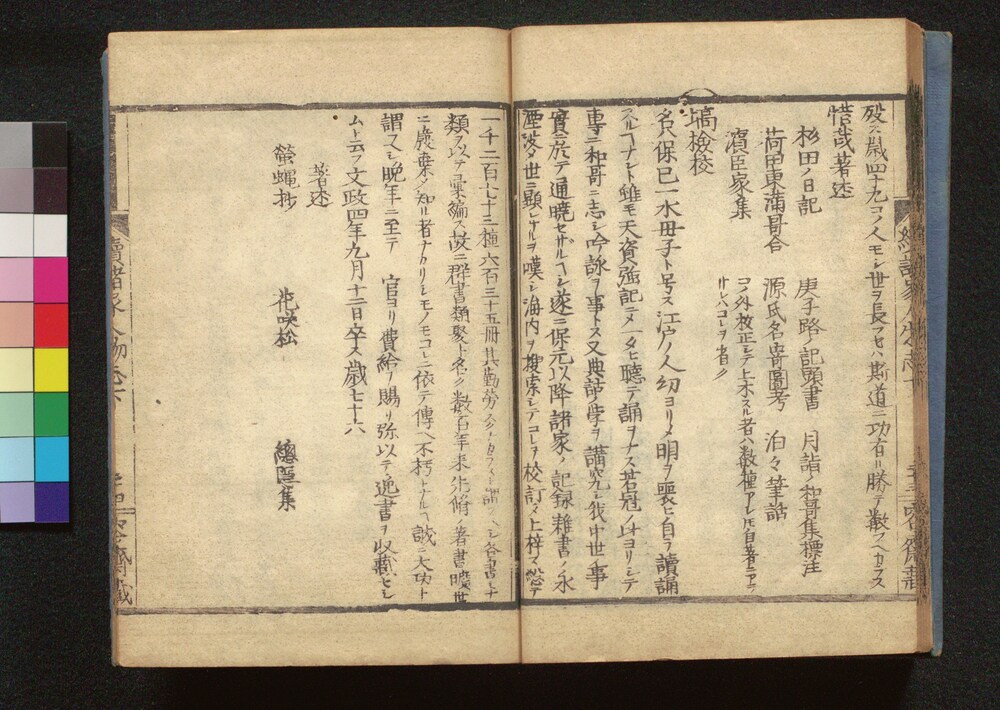 歿ス歳四十九コノ人モシ世ヲ長フセハ斯道ニ功有ル勝テ数スヘカラス
惜哉著述
杉田ノ日記 庚子路ノ記頭書 月詣ノ和哥集標注
荷田東満哥合 源氏名寄圖考 泊々筆話
濱臣家集 コノ外校正シテ上木スル者ハ数種アレ𪜈自著ニアラ
サレハコレヲ省ク
塙檢校
名ハ保已一水母子ト号ス江戸ノ人幼ヨリメ明ヲ喪ヒ自ラ讀誦
スルヿナシト雖モ天資強記ニメ一タヒ聴テ誦ヲナス若冠ノ才ヨリシテ
専ニ和哥ニ志シ吟詠ヲ事トス又典詁ノ学ヲ講究シ我中世ノ事
實ニ於テ通暁セザルヿシ遂ニ保元以降諸家ノ記録雜書ノ永
湮没メ世ニ顕レサルヲ嘆シ海内ヲ搜索シテコレヲ校訂メ上梓ス總テ
一千二百七十三種六百三十五冊其勤労 各書ミナ
類ヲ以テ彙編ス故ニ群書類聚ト名ク数百年来 ノ著書曠世
ニ廢棄メ知ル者ナカリシモノモコレニ依テ傳ヘ不朽トナルヿ誠ニ大功ト
謂フヘシ晩年ニ至テ 官ヨリ費給ヲ賜リ弥以テ逸書ヲ收藏セシ
ム上云フ文政四年九月十二日卒ス歳七十六
著述
螢蠅抄 花咲松 總匱集
續諸家人物志下